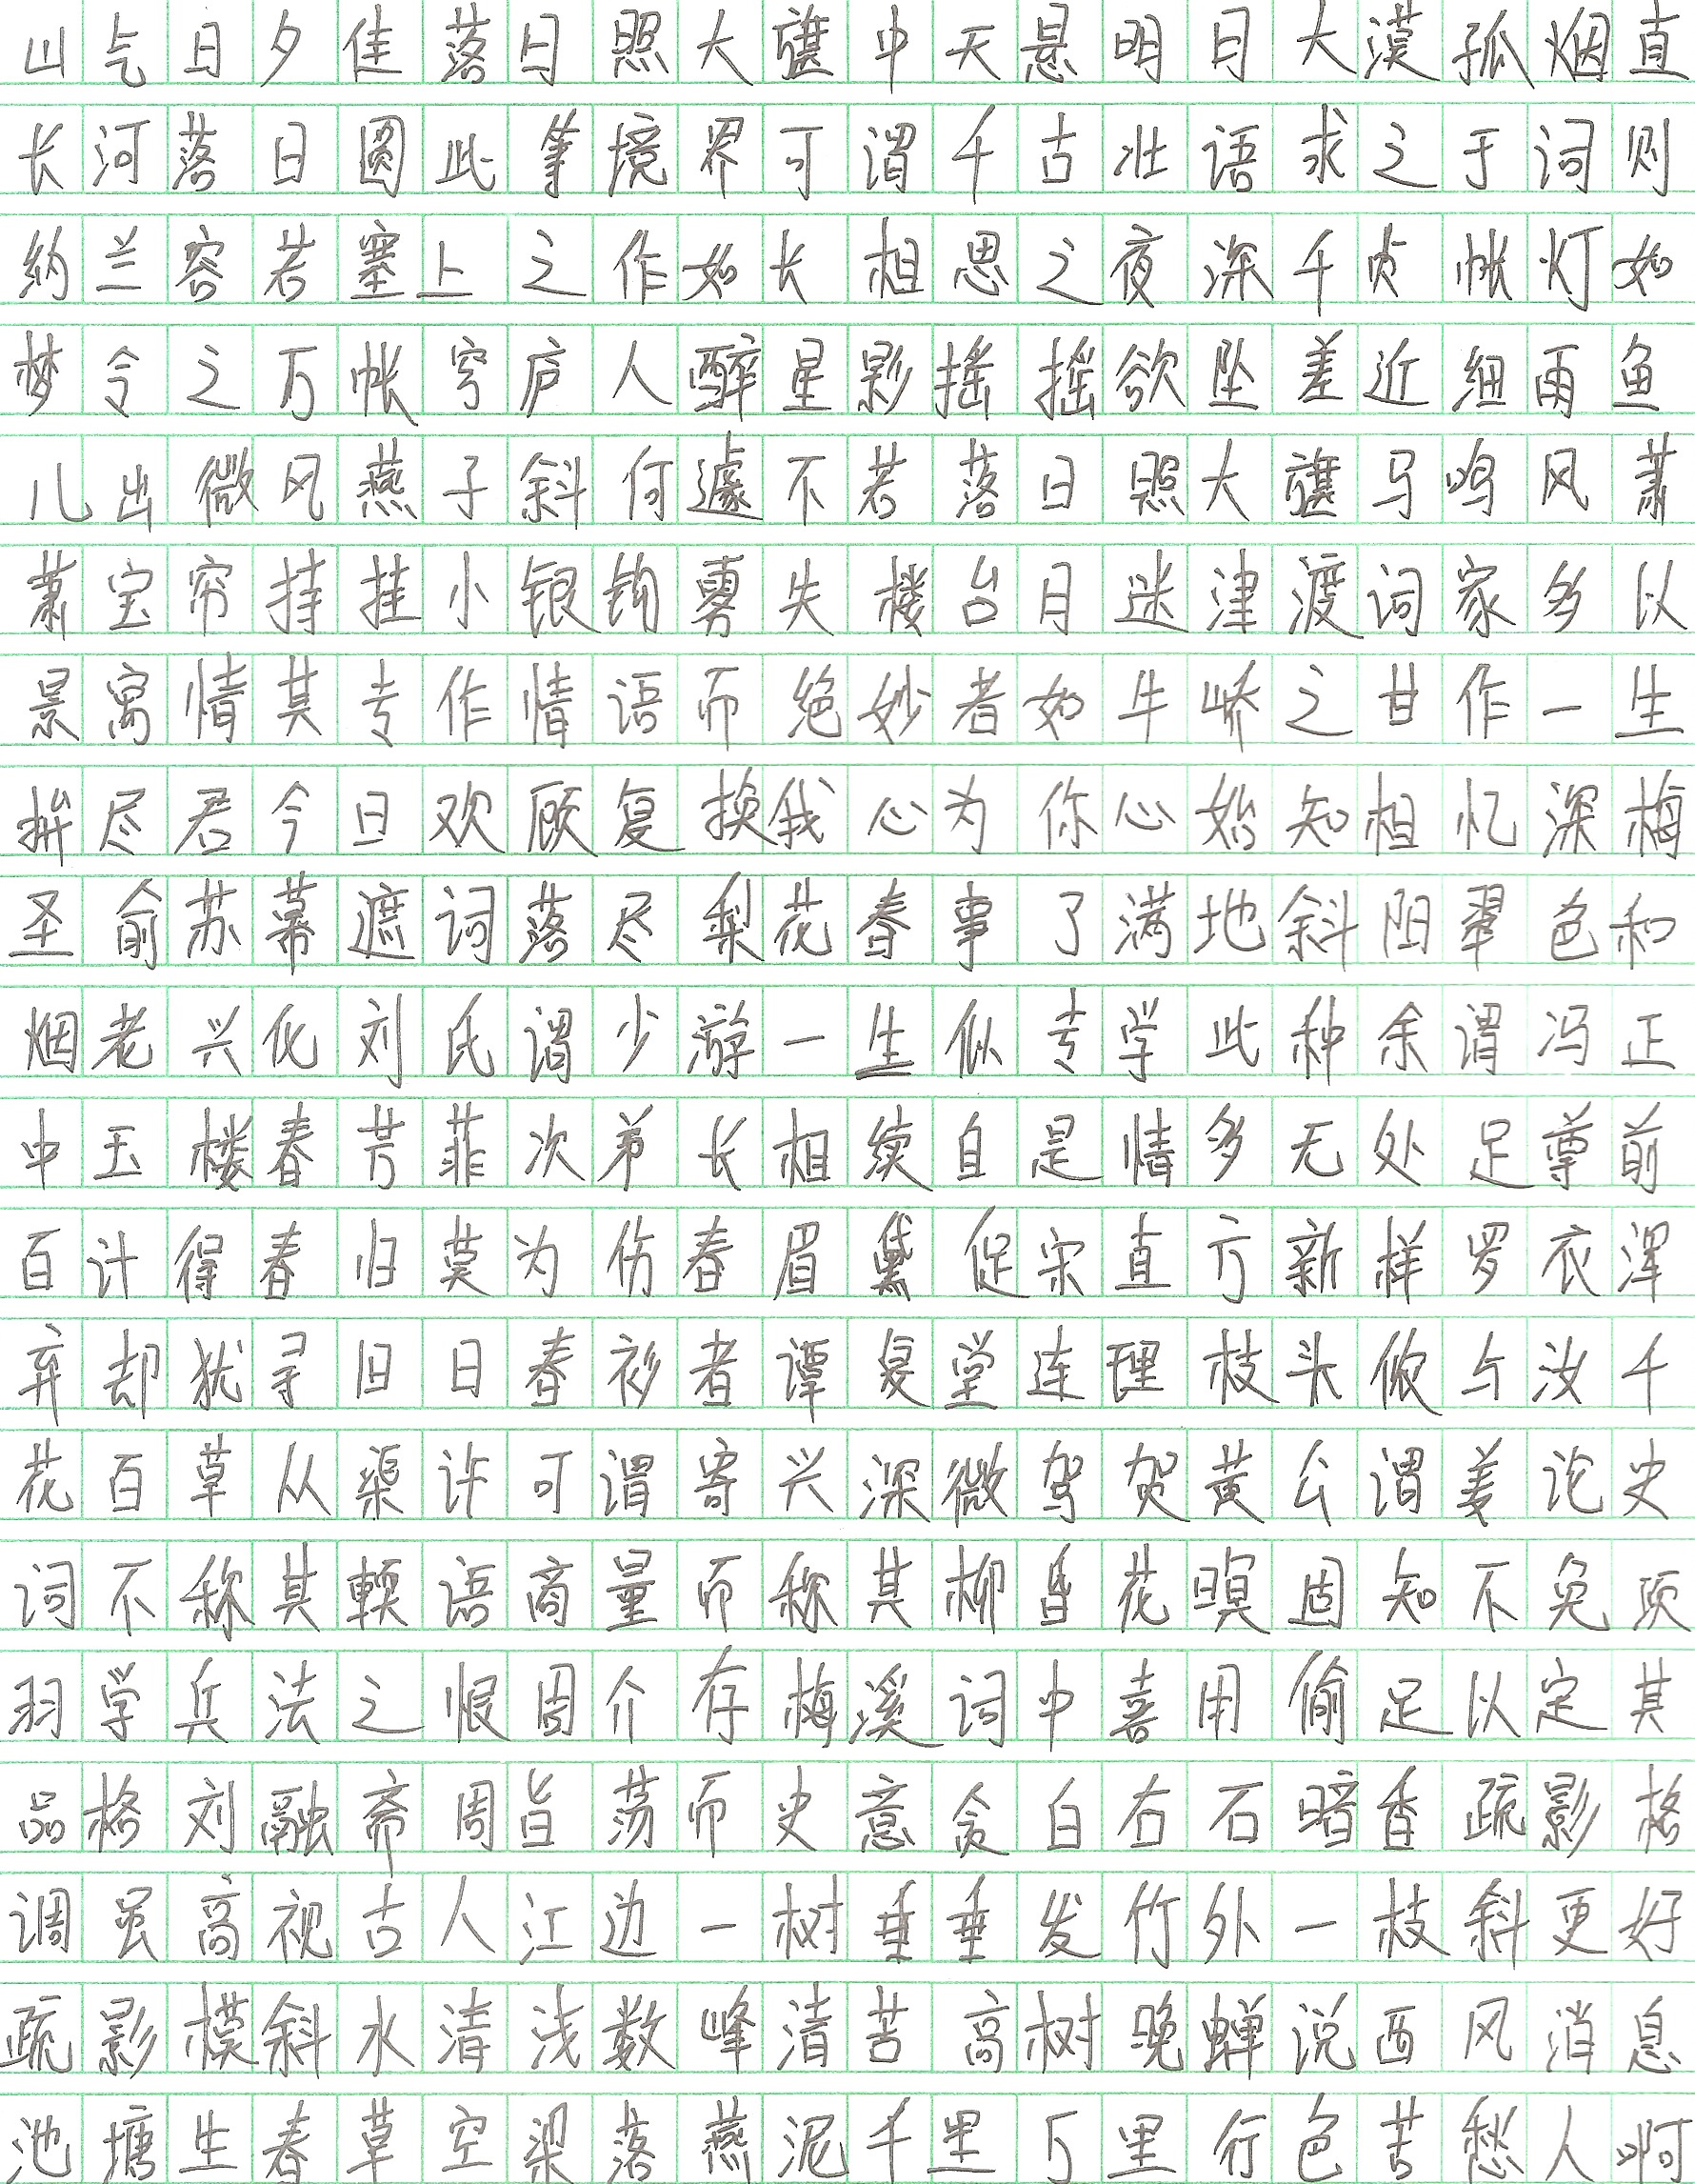 山气日夕佳落日照大旗中天悬明月大漠孤烟直
长河落日圆此等境界可谓千古壮语求之于词则
纳兰容若塞上之作如长相思之夜深千帐灯如
梦令之万帐穹庐人醉星影摇摇欲坠差近细雨鱼
儿出微风燕子斜何遽不若落日照大旗马鸣风萧
萧宝帘挂小银钩雾失楼台月迷津渡词家多以
景寓情其专作情语而绝妙者如牛峤之甘作一生
拚尽君今日欢顾夐换我心为你心始知相忆深梅
圣俞苏幕遮词落尽梨花春事了满地斜阳翠色和
烟老兴化刘氏谓少游一生似专学此种余谓冯正
中玉楼春芳菲次第长相续自是情多无处足尊前
百计得春归莫为伤春眉黛促宋直方新样罗衣浑
弃却犹寻旧日春衫着谭复堂连理枝头侬与汝千
花百草从渠许可谓寄兴深微贺黄公谓姜论史
词不称其软语商量而称其柳昏花暝固知不免项
羽学兵法之恨周介存梅溪词中喜用偷足以定其
品格刘融斋周旨荡而史意贪白石暗香疏影格
调虽高视古人江边一树垂垂发竹外一枝斜更好
疏影横斜水清浅数峰清苦高树晚蝉说西风消息
池塘生春草空梁落燕泥千里万里行色苦愁人啊